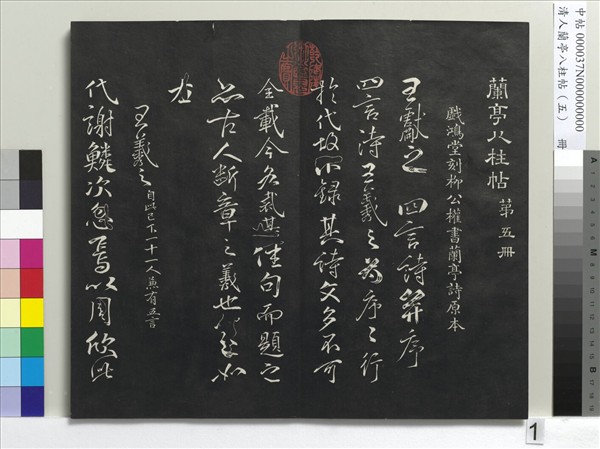 蘭亭八柱帖 第五冊
戲鴻堂刻柳公權書蘭亭詩原本
王獻之 四言詩并序
四言詩王羲之為序序行
於代故不錄其詩文多不可
全載今各裁其佳句而題之
亦古人斷章之義也
王羲之 自此已下一十一人並有五言
代謝鱗次忽焉以周欣此
中帖 000037N000000000
清人蘭亭八柱帖(五) 冊
1